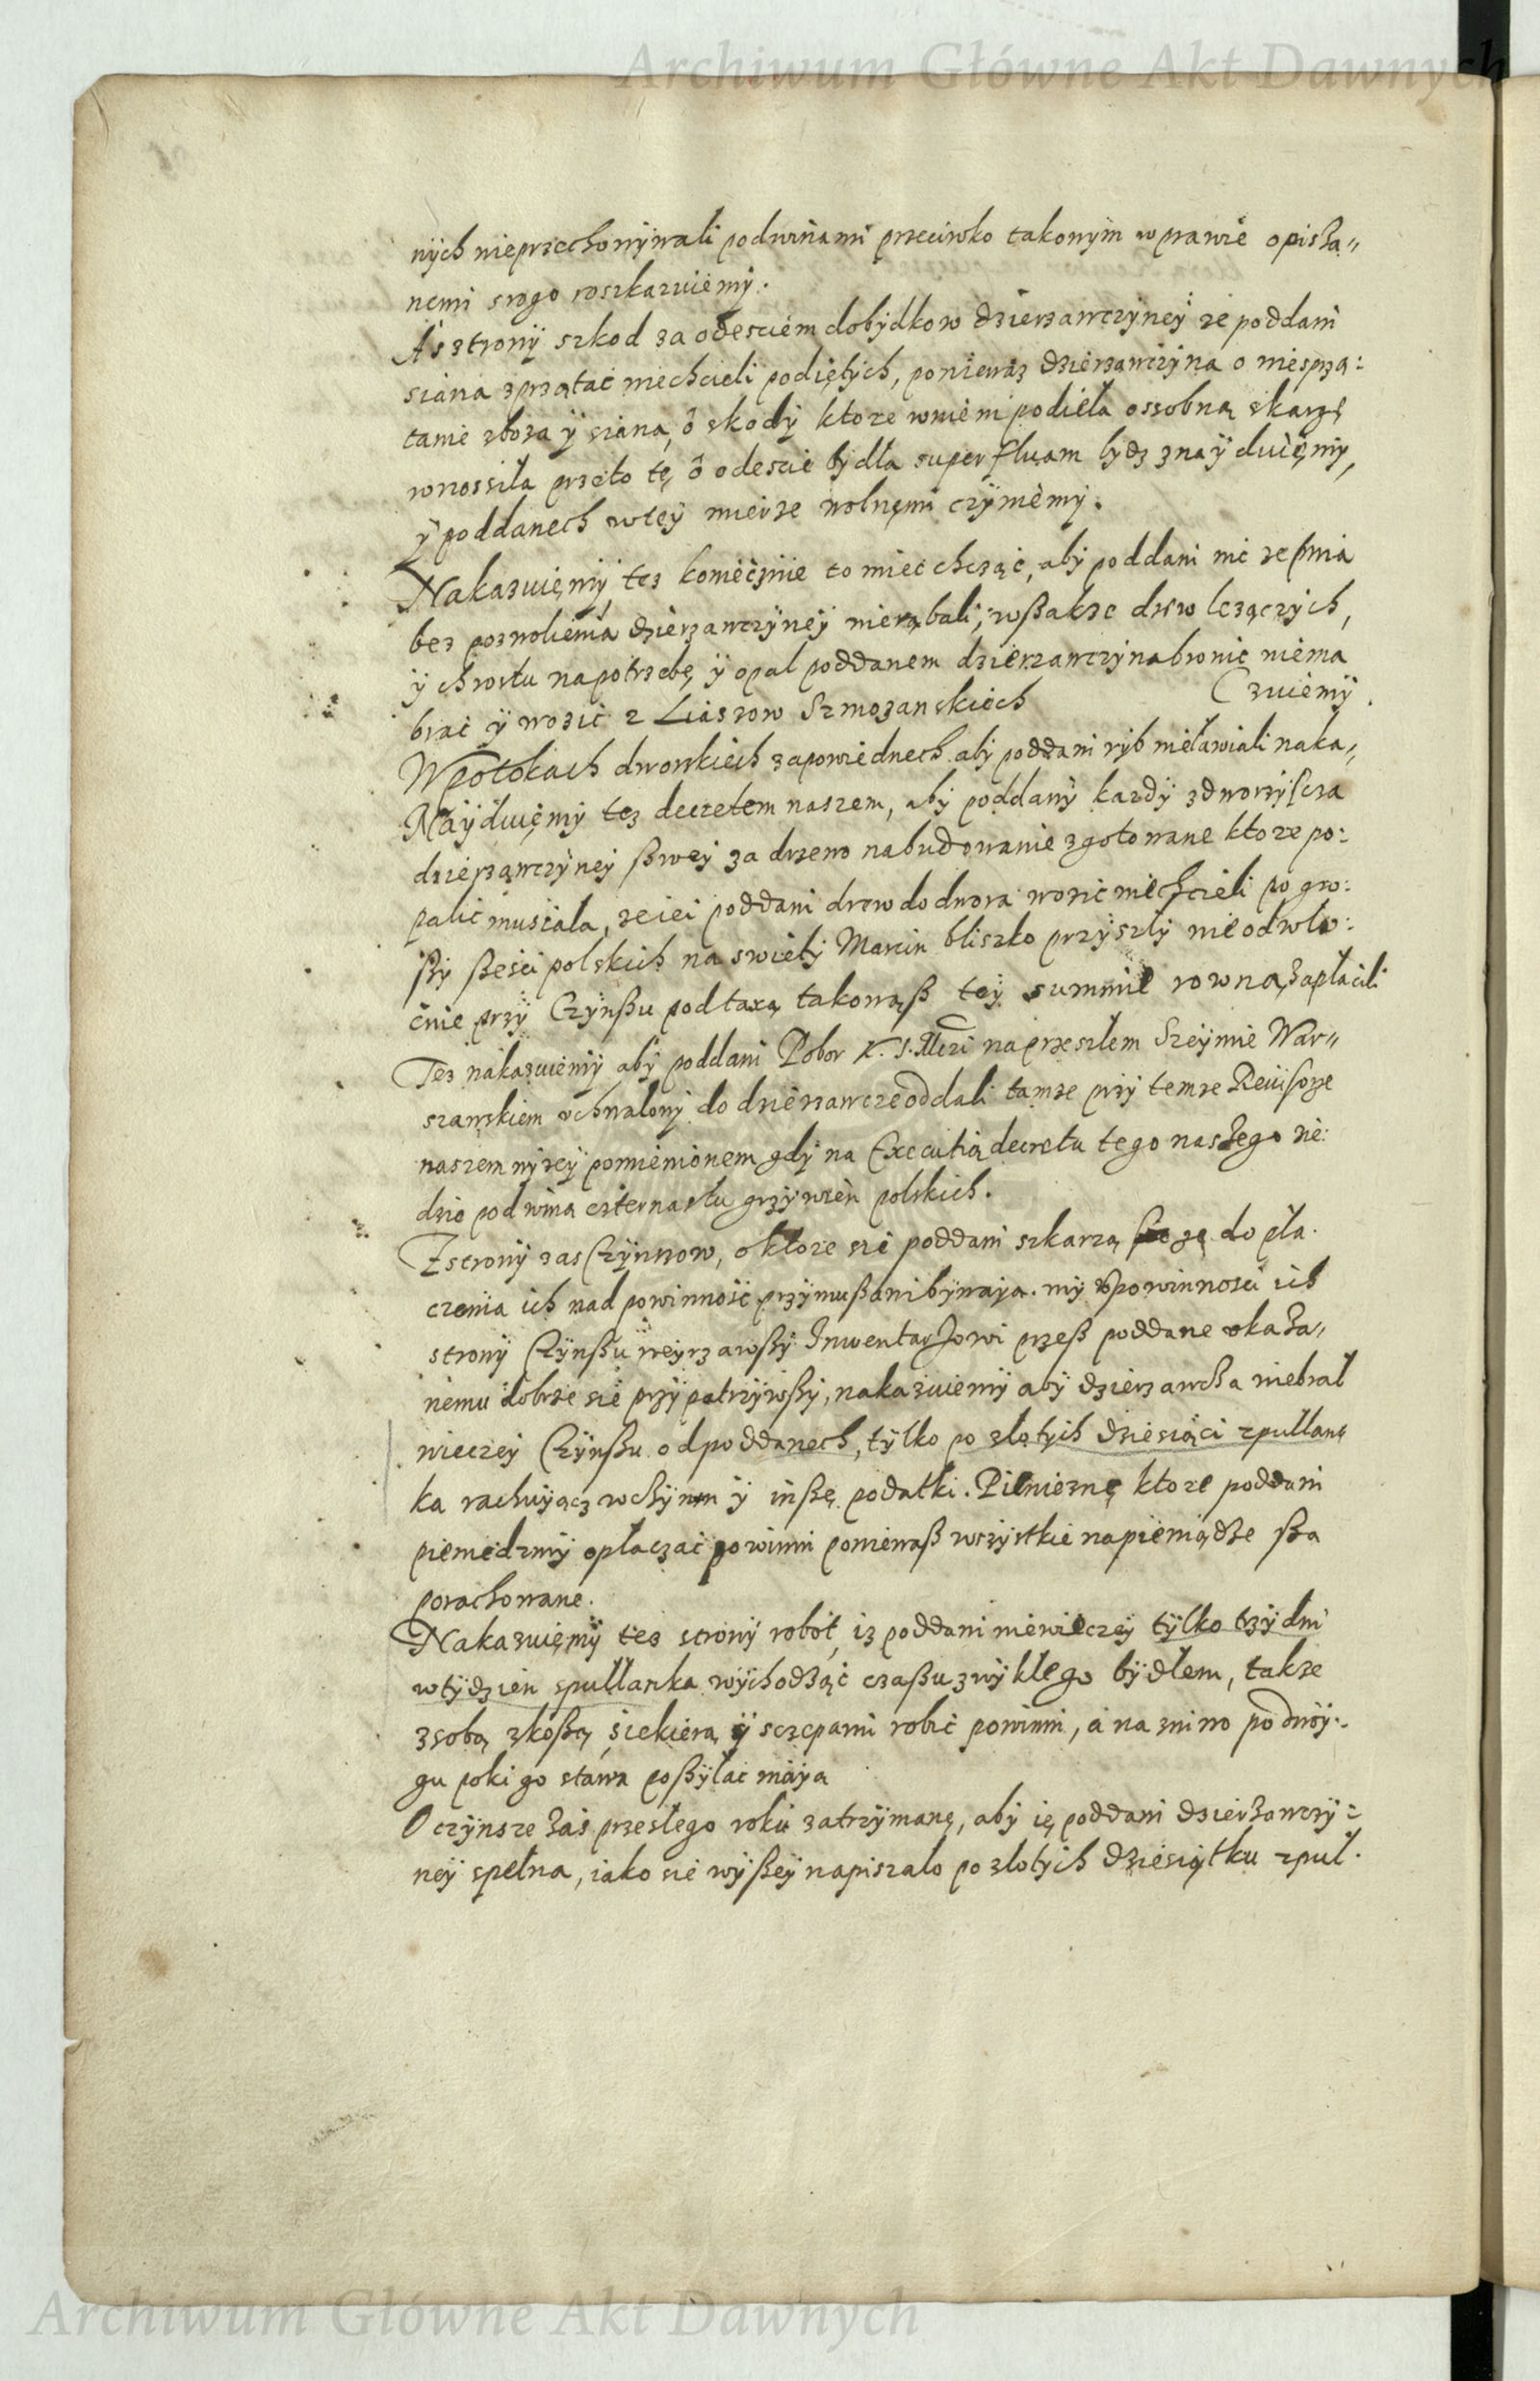 Archiwum Główne Akt Dawnych
nÿch nieprzechowÿwali podwinami przeciwko takowÿm w prawie opisza„
nemi srogo roszkazuiemÿ.
A s stronÿ szkod za odesciem dobÿdkow dzierzawczÿneÿ ze poddani
siana zprzątac niechcieli podiętÿch, poniewaz dzierzawczÿna o niesprzą:
tanie zboza ÿ siana, o skodÿ ktore wniem podięła ossobną skargę
wnossiła przeto tę o odescie bÿdła superfluam bÿdz znaÿduięmÿ,
ÿ poddanech wteÿ mierze wolnęmi czÿniemÿ.
Nakazuięmÿ tez koniecznie to miec chcząc, abÿ poddani nic ze pnia
bez pozwolienia dzierzawczÿneÿ nierąbali, wßakze drew lezączÿch,
ÿ chrostu napotrzebę ÿ opal poddanem dzierzawczÿna bronic niema
brac ÿ wozic z Liassow Szmozanskiech
(zuiemÿ.
Wpotokach dworskiech zapowiednech abÿ poddani rÿb nieławiali naka„
Naÿduięmÿ tez decretem naszem, abÿ poddanÿ kazdÿ zdworzÿscza
dzierząwczÿneÿ ßweÿ za drzewo nabudowanie zgotowane ktore po:
palic musiala, ze iei poddani drew do dwora wozic niechcieli po gro:
ßÿ ßesci polskich na swietÿ Marcin blisko przÿszlÿ nieodwlo:
cnie przÿ Czÿnßu pod taxą takowąß teÿ summie rowną zaplacili
Tez nakazuiemÿ abÿ poddani Pobor K. J. Mczi na przeszlem Szeÿmie War„
szawskiem uchwalonÿ do dzierzawcze oddali tamze przÿ temze Reuisorze
naszem nÿzeÿ pomienionem gdÿ na Executią decretu tego naszego zie:
dzie pod winą czternastu grzÿwien polskich.
Z stronÿ zas Czÿnszow, o ktore sie poddani szkarzą ze sę do pła.
czenia ich nad powinność przÿmußani bÿwaÿa. mÿ powinnosci ich
stronÿ Czÿnßu weÿrzawßÿ Inwentarzowi przeß poddane okaza„
nemu dobrze sie przÿpatrzÿwßÿ, nakazuiemÿ abÿ dzierzawcza niebrał
wieczeÿ Czÿnßu od poddanech, tÿlko po złotÿch dziesiąci z pułlanę
ka rachuÿącz wchÿnm ÿ inßę podatki. Pieniezne ktore poddani
pieniedzmÿ opłaczac powinni poniewaß wszÿstkie na pieniądze ßza
porachowane.
Nakazuięmÿ tez stronÿ robot, iz poddani niewieczeÿ tÿlko trzÿ dni
wtÿdzien s pułlanka wÿchodząc czaßu zwÿklego bÿdłem, takze
z sobą z koßą, siekierą ÿ sczepami robic powinni, a na zniwo po dwoÿ:
gu poki go stawa poßÿłac maÿa
O czÿnsze zas przeslego roku zatrzÿmanę, abÿ ię poddani dzierzawczÿ:
neÿ spełna, iako sie wÿßeÿ napiszalo po zlotÿch dziesiątku z puł.
Archiwum Główne Akt Dawnych